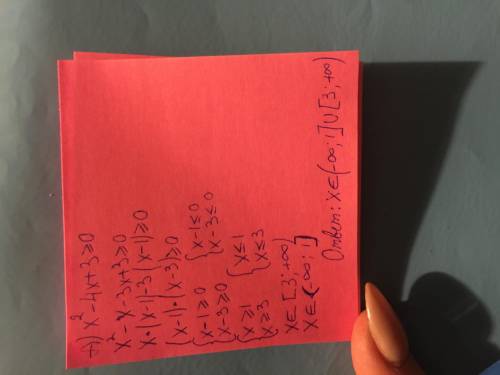 7) x² - 4x + 3 ≥ 0
x² - x - 3x + 3 ≥ 0
x · (x - 1) - 3 (x - 1) ≥ 0
(x - 1) · (x - 3) ≥ 0
{ x - 1 ≥ 0 { x - 1 ≤ 0
{ x - 3 ≥ 0 { x - 3 ≤ 0
{ x ≥ 1 { x ≤ 1
{ x ≥ 3 { x ≤ 3
x ∈ [3; +∞)
x ∈ (-∞; 1]
Ответ: x ∈ (-∞; 1] ∪ [3; +∞)